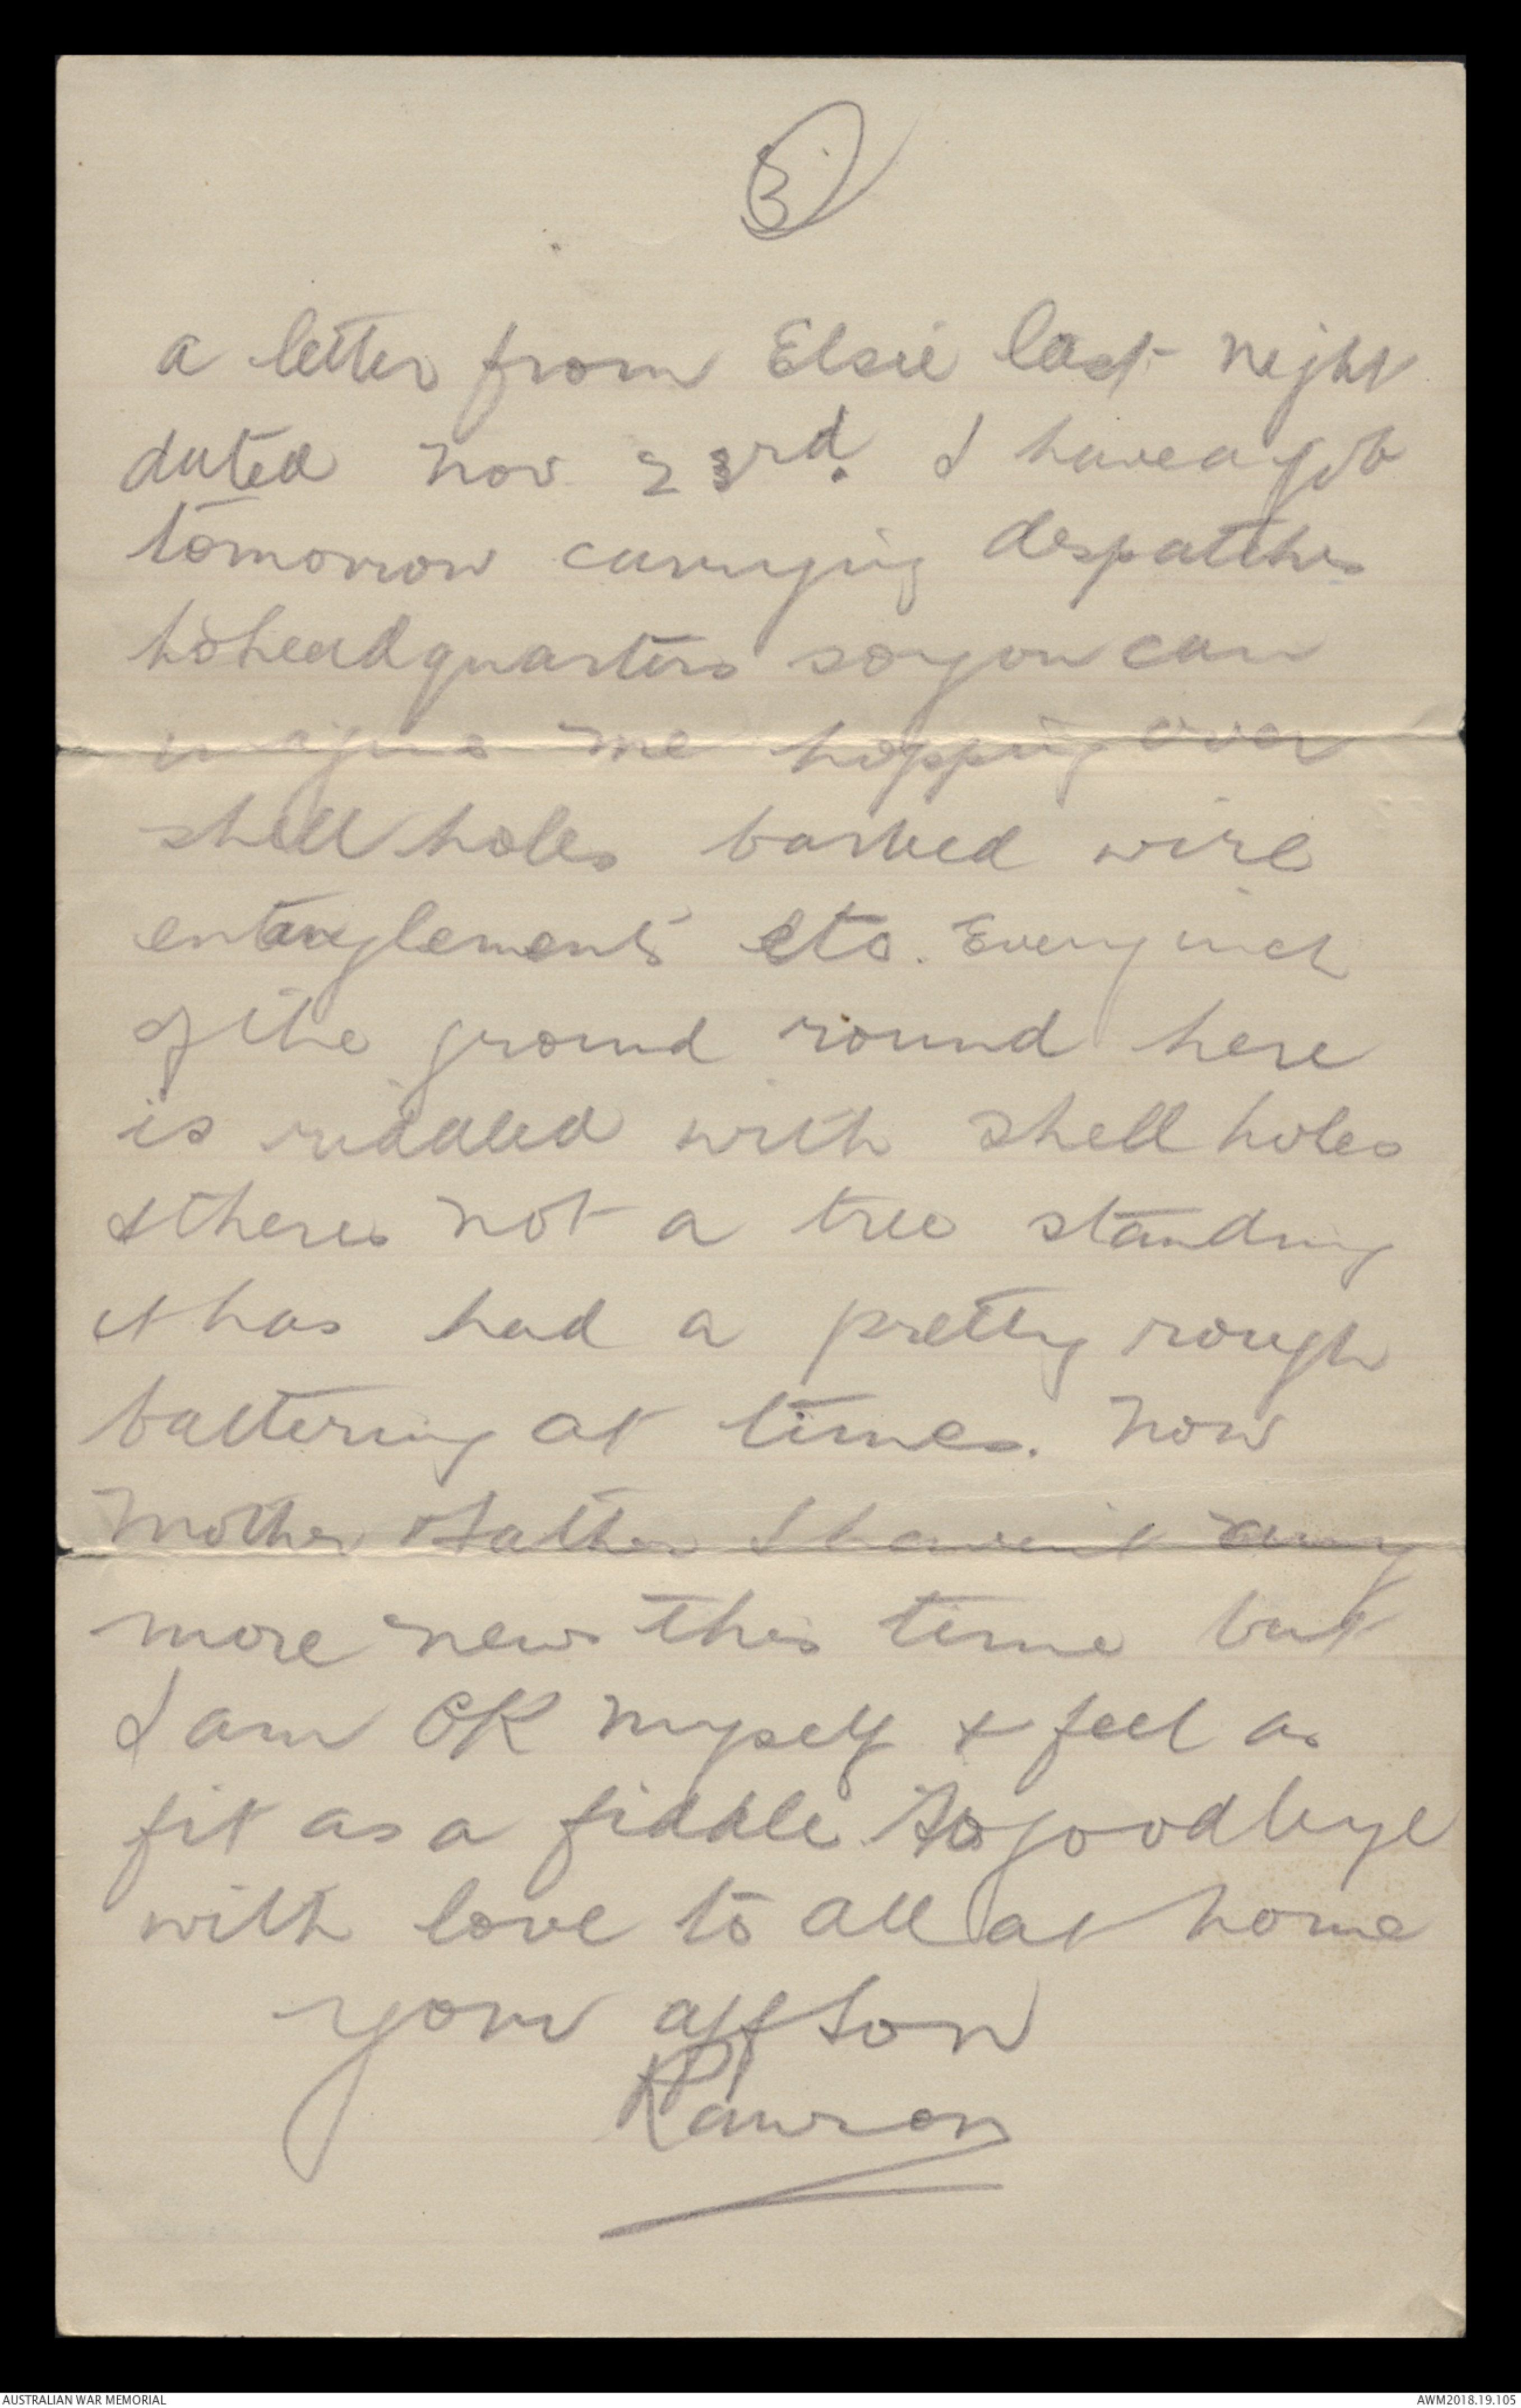 3
a letter from Elsie last night
dated Nov 23rd. I have a job
tomorrow carrying despatches
to headquarters so you can
imagine me hopping over
shell holes barbed wire
entanglements etc. Every inch
of the ground round here
is riddled with shell holes
& theres not a tree standing
it has had a pretty rough
battering at times. Now
Mother & Father I haven't any
more news this time but
I am OK myself & feel as
fit as a fiddle so goodbye
with love to all at home
your aff son
Rawson
AUSTRALIAN WAR MEMORIAL
AWM2018.19.105